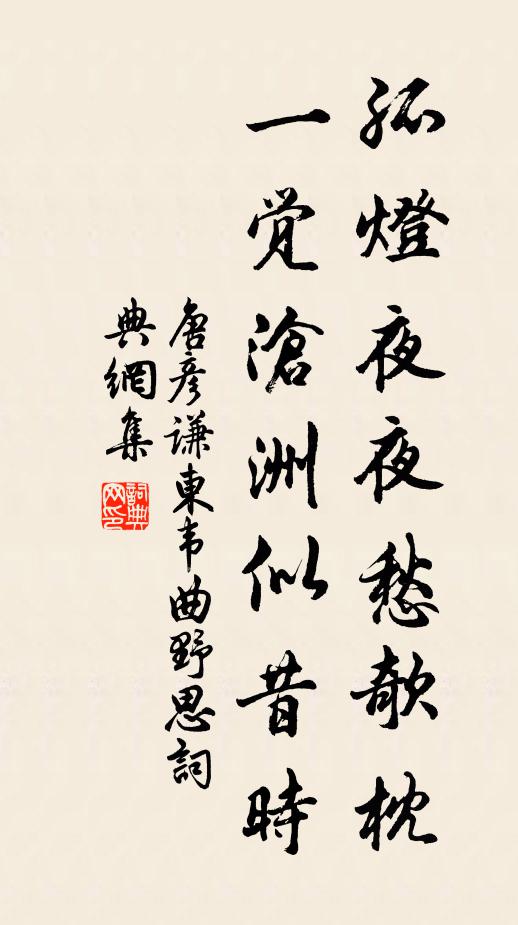 孤燈夜夜愁欹枕
一覚滄洲似昔時
唐彦謙東韦曲野思詞
典網集
詞典
网印